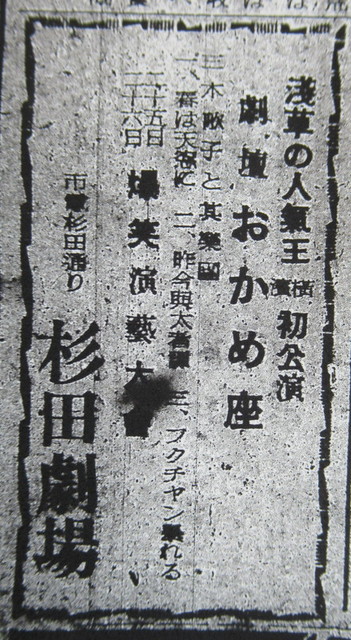 浅草の人氣王 横濱初公演
劇壇 おかめ座
三木歌子と其樂團
一、春は天窓に 二、昨今與太者 三、フクチャン暴れる
二十五日
二十六日 爆笑演藝大會
市電杉田通り
杉田劇場